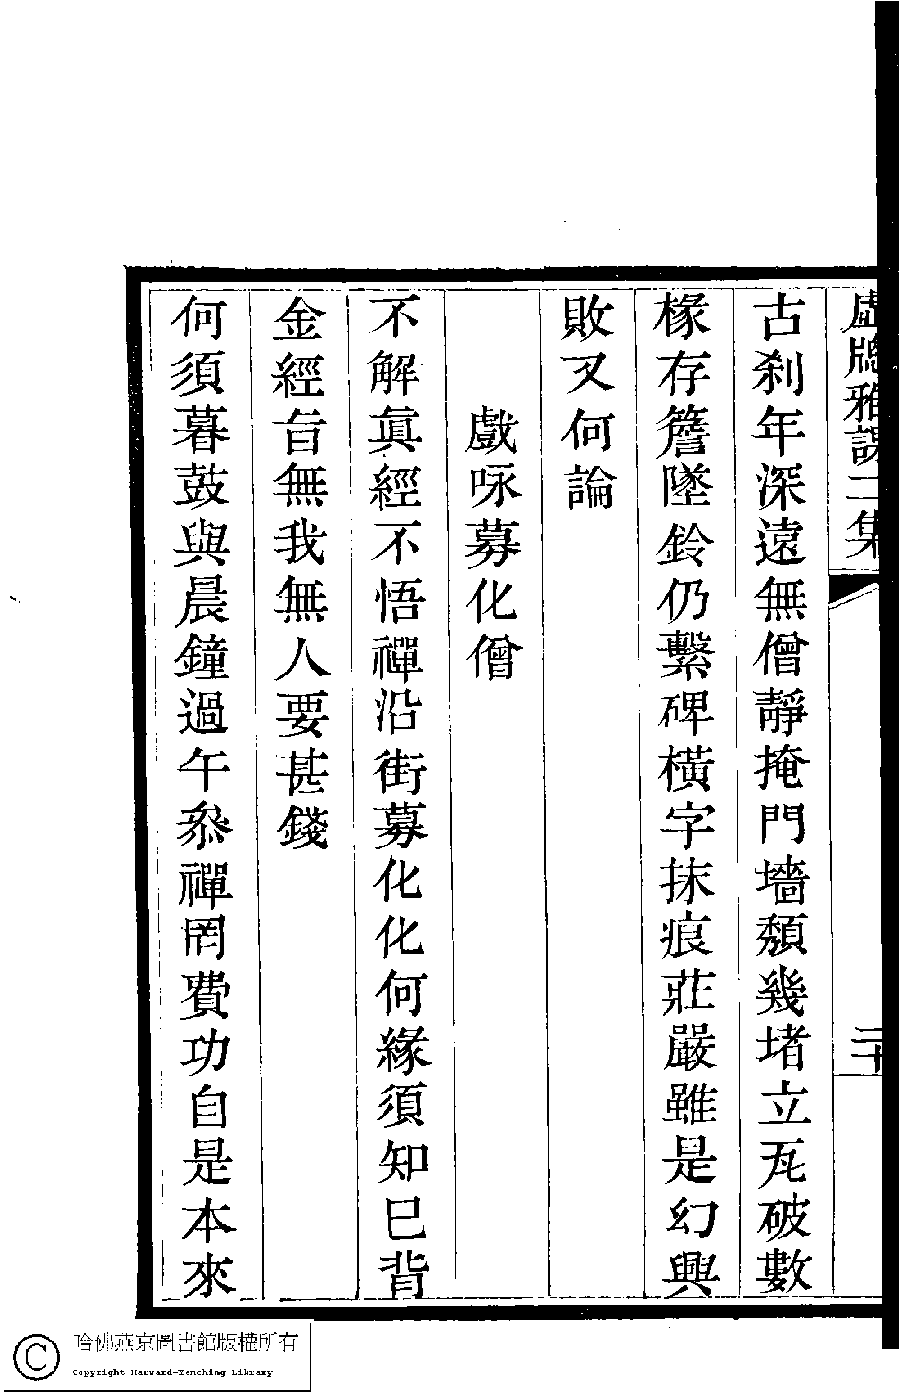 虛牕雅課二集
二十
古刹年深遠無僧靜掩門墻頽幾堵立瓦破數
椽存簷墜鈴仍繫碑橫字抹痕莊嚴雖是幻興
敗又何論
戲咏募化僧
不解眞經不悟禪沿街募化化何緣須知巳背
金經旨無我無人要甚錢
何須暮鼓與晨鐘過午叅禪罔費功自是本來
哈佛燕京圖書館版權所有
Copyright Harvard-Yenching Library